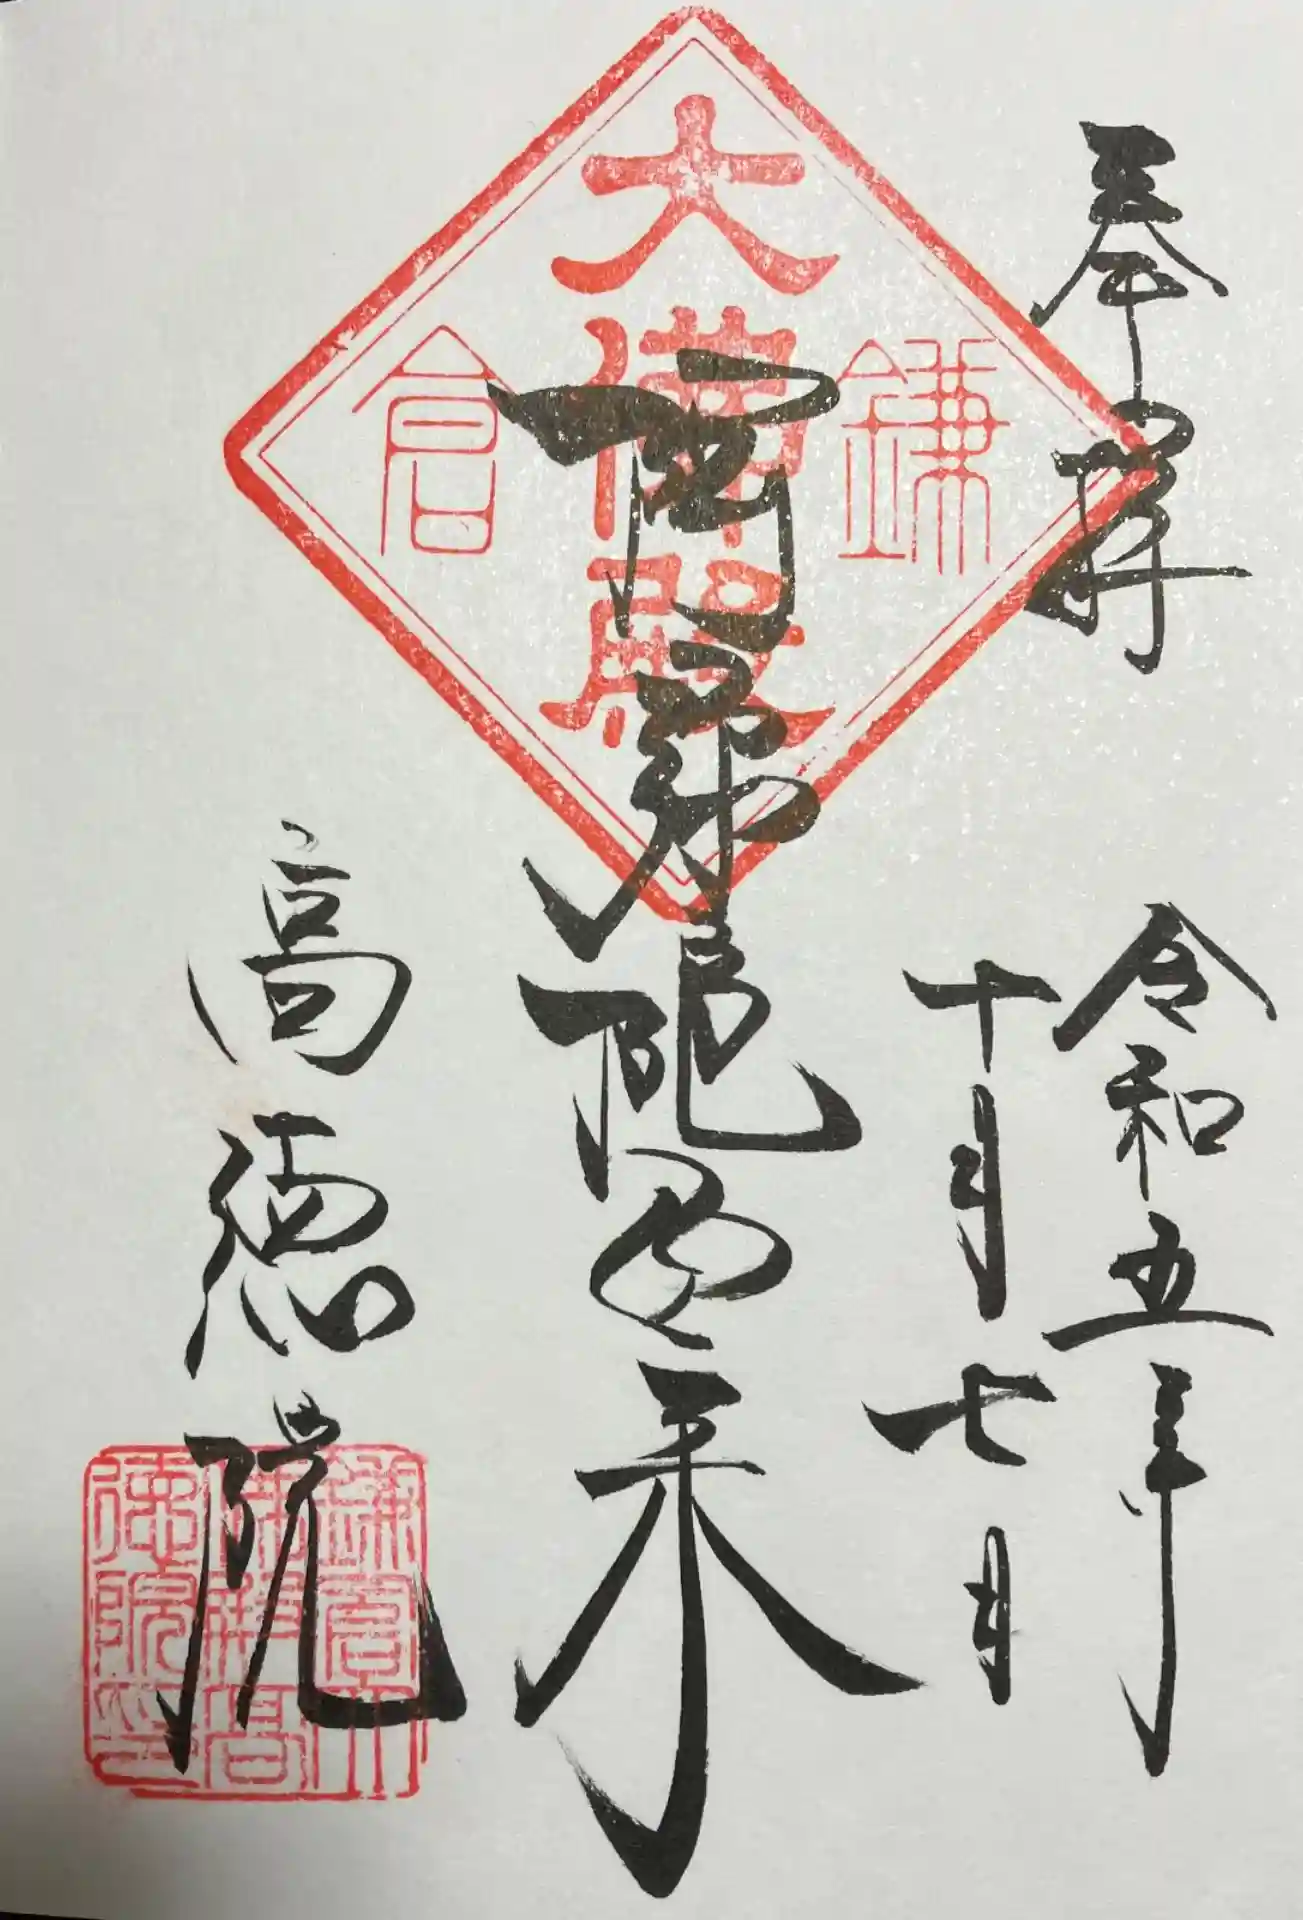 奉拝
令和五年
十月七日
阿弥陀如来
高徳院
鎌倉
大佛殿
鎌倉大
佛殿高
徳院印